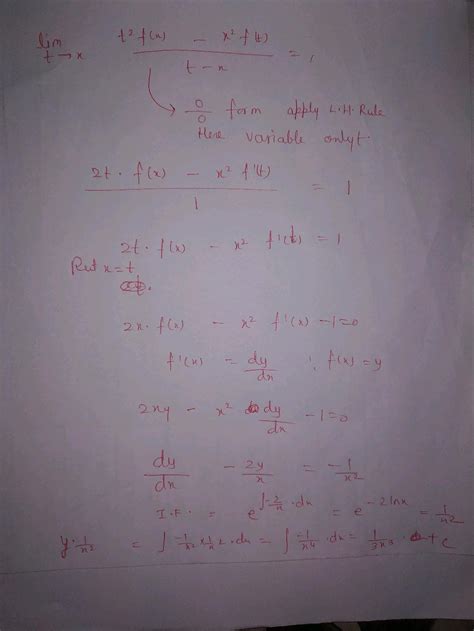 lim t→x t² f(x) - x² f(t) / t - x = 1
→ 0/0 form apply L.H. Rule
Here variable only t.
2t · f(x) - x² f'(t) / 1 = 1
2t · f(x) - x² f'(t) = 1
Put x = t
2x · f(x) - x² f'(x) - 1 = 0
f'(x) = dy/dx ∴ f(x) = y
2xy - x² dy/dx - 1 = 0
dy/dx - 2y/x = -1/x²
I.F. = e^∫-2/x · dx = e^-2lnx = 1/x²
y · 1/x² = ∫ -1/x² × 1/x² · dx = ∫ -1/x⁴ · dx = 1/3x³ + c